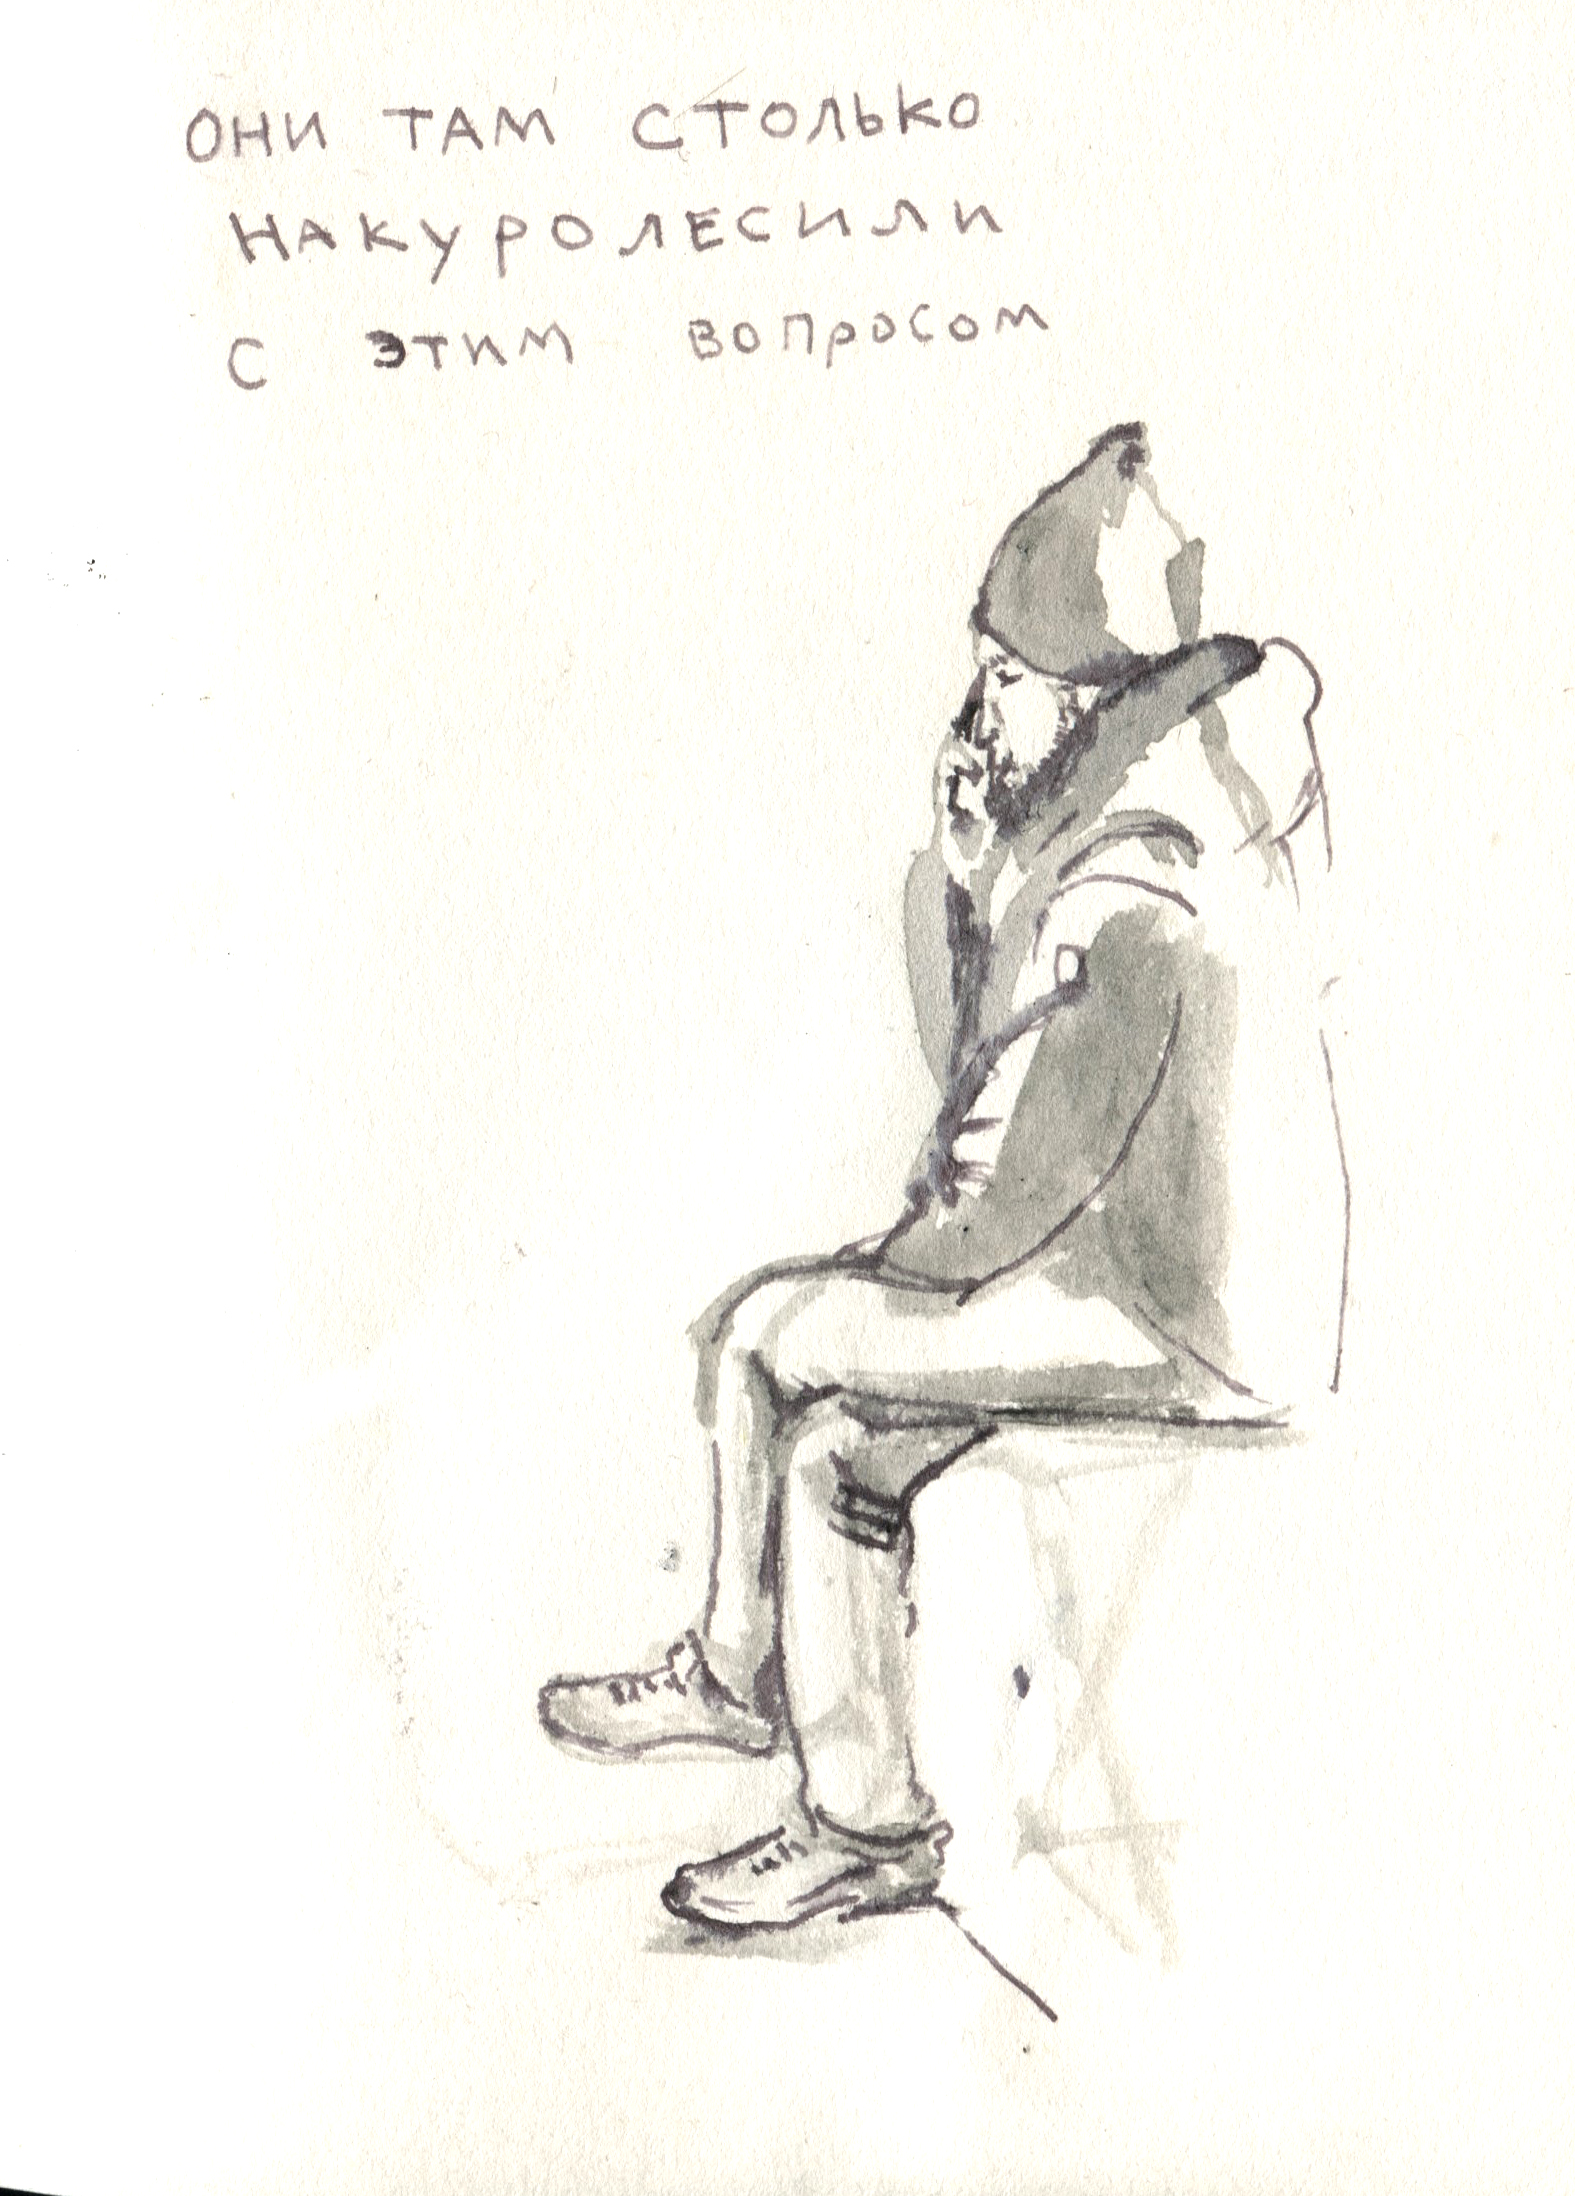 ОНИ ТАМ СТОЛЬКО
НАКУРОЛЕСИЛИ
С ЭТИМ ВОПРОСОМ